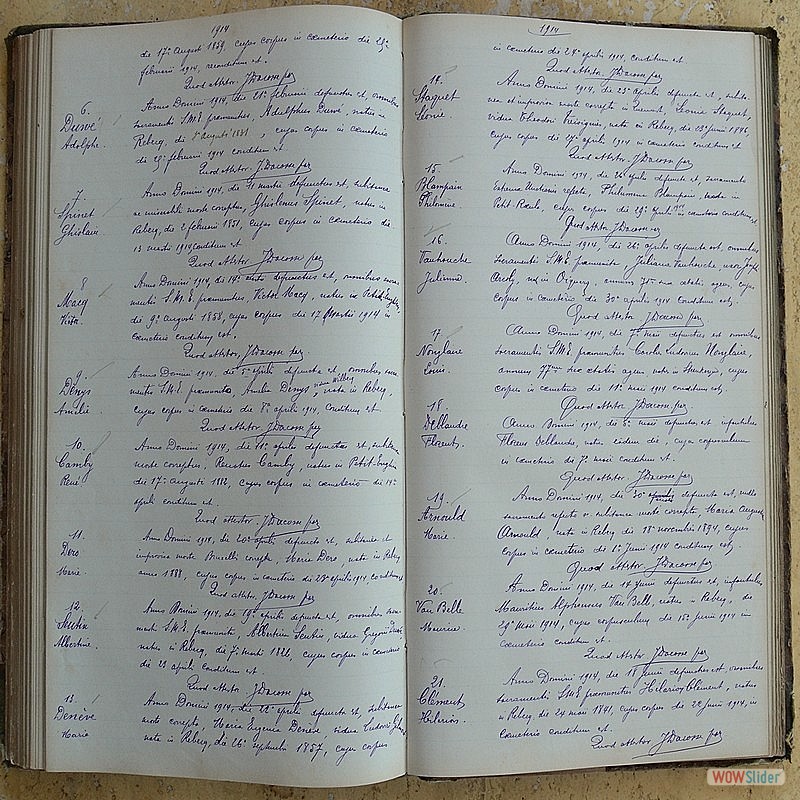 1914
die 17ª Augusti 1859, cujus corpus in cœmeterio die 23ª
februarii 1914, reconditum est.
Quod Attestor JDacosse par
6.
Duwé
Adolphe.
Anno Domini 1914, die 25ª februarii defunctus est, omnibus
sacramentis S.M.E. præmunitus, Adolphus Duwé, natus in
Rebecq, die Augusti 1831, cujus corpus in cœmeterio
februarii 1914 conditum est
Quod Attestor. JDacosse par
7.
Spinet
Ghislain.
Anno Domini 1914, die 11 martii defunctus est, subitanea
morte correptus, Ghislenus Spinet, natus in
Rebecq, die 2 februarii 1851, cujus corpus in cœmeterio die
13 martii 1914 conditum est
Quod Attestor. JDacosse par
8
Macq
Victor.
Anno Domini 1914, die 14ª defunctus est, omnibus sacra-
mentis S.M.E. præmunitus, Victor Macq, natus in Petit-Enghien,
die 9ª Augusti 1858, cujus corpus die 17 Martii 1914 in
cœmeterio conditum est.
Quod Attestor JDacosse par.
9.
Denys
Amélie.
Anno Domini 1914, die 5ª aprilis defuncta est, omnibus sacra-
mentis S.M.E. præmunita, Amelia Denys, nata in Rebecq,
cujus corpus in cœmeterio die 8ª aprilis 1914, conditum est.
Quod Attestor JDacosse par
10.
Camby
René.
Anno Domini 1914, die 11ª aprilis defunctus est, subitanea
morte correptus, Renatus Camby, natus in Petit-Enghien
die 17ª Augusti 1882, cujus corpus in cœmeterio die 14ª
aprilis conditum est.
Quod attestor. JDacosse par
11.
Dero
Marie.
Anno Domini 1914, die 20ª aprilis defuncta est, subitanea et
improvisa morte Bruxelli correpta, Maria Dero, nata in Rebecq
anno 1888, cujus corpus in cœmeterio die 23ª aprilis 1914, conditum est
Quod attestor. JDacosse par
12.
Albertine.
Anno Domini 1914, die 19ª aprilis defuncta est, omnibus sacra-
mentis S.M.E. præmunita, Albertina vidua Gregorii
nata in Rebecq, die 7ª martii 1822, cujus corpus in cœmeterio
die 23 aprilis conditum est.
Quod Attestor JDacosse par
13.
Denève
Maria
Anno Domini 1914, die 22ª aprilis defuncta est, subitanea
morte correpta Maria Eugenia Denève, vidua Ludovici
nata in Rebecq, die 26ª septembris 1857, cujus corpus
1914
in cœmeterio die 24ª aprilis 1914, conditum est
Quod Attestor. JDacosse par
14.
Staquet
Léonie.
Anno Domini 1914, die 23ª aprilis defuncta est, subita-
nea et improvisa morte correpta in Quenast, Leonia Staquet,
vidua Theodori nata in Rebecq, die 23ª junii 1846,
cujus corpus die 27ª aprilis 1914 in cœmeterio conditum est
Quod Attestor JDacosse par
15.
Blampain
Philomène.
Anno Domini 1914, die aprilis defuncta est, sacramento
Extremæ Unctionis refecta, Philomena Blampain, nata in
Petit-Rœulx, cujus corpus die 29ª aprilis 1914 in cœmeterio conditum est
Quod Attestor JDacosse par
16.
Vanhoucke
Julienne.
Anno Domini 1914, die 26ª aprilis defuncta est, omnibus
sacramentis S.M.E. præmunita Juliana Vanhoucke, uxor
nata in annum 75um suæ ætatis agens, cujus
corpus in cœmeterio die 30ª aprilis 1914 conditum est.
Quod Attestor. JDacosse par
17.
Nonclaire
Louis.
Anno Domini 1914, die 7ª mai defunctus est omnibus
sacramentis S.M.E. præmunitus Carolus Ludovicus Nonclaire,
annum 77um suæ ætatis agens, natus in cujus
corpus in cœmeterio die 11ª mai 1914 conditum est,
Quod Attestor. JDacosse par.
18.
Dellandre
Florent.
Anno Domini 1914, die 5ª mai defunctus est infantulus
Florens Dellandre, natus eadem die, cujus corpusculum
in cœmeterio die 7ª maii conditum est.
Quod Attestor JDacosse par
19.
Arnould
Marie.
Anno Domini 1914, die 30ª defuncta est, nullo
sacramento refecta subitanea morte correpta, Maria Augusta
Arnould, nata in Rebecq die 18ª novembris 1894, cujus
corpus in cœmeterio die 1ª Junii 1914 conditum est,
Quod Attestor. JDacosse par
20.
Van Belle
Maurice.
Anno Domini 1914, die 14 Junii defunctus est, infantulus
Mauritius Alphonsus Van Belle, natus in Rebecq, die
29ª Maii 1914, cujus corpusculum die 15ª junii 1914 in
cœmeterio conditum est.
Quod Attestor JDacosse par
21.
Clément
Hilarion.
Anno Domini 1914, die 18 Junii defunctus est, omnibus
sacramentis S.M.E præmunitus Hilarion Clément, natus
in Rebecq die 24 mai 1841, cujus corpus die 22 Junii 1914, in
cœmeterio conditum est.
Quod Attestor JDacosse par
WOWSlider